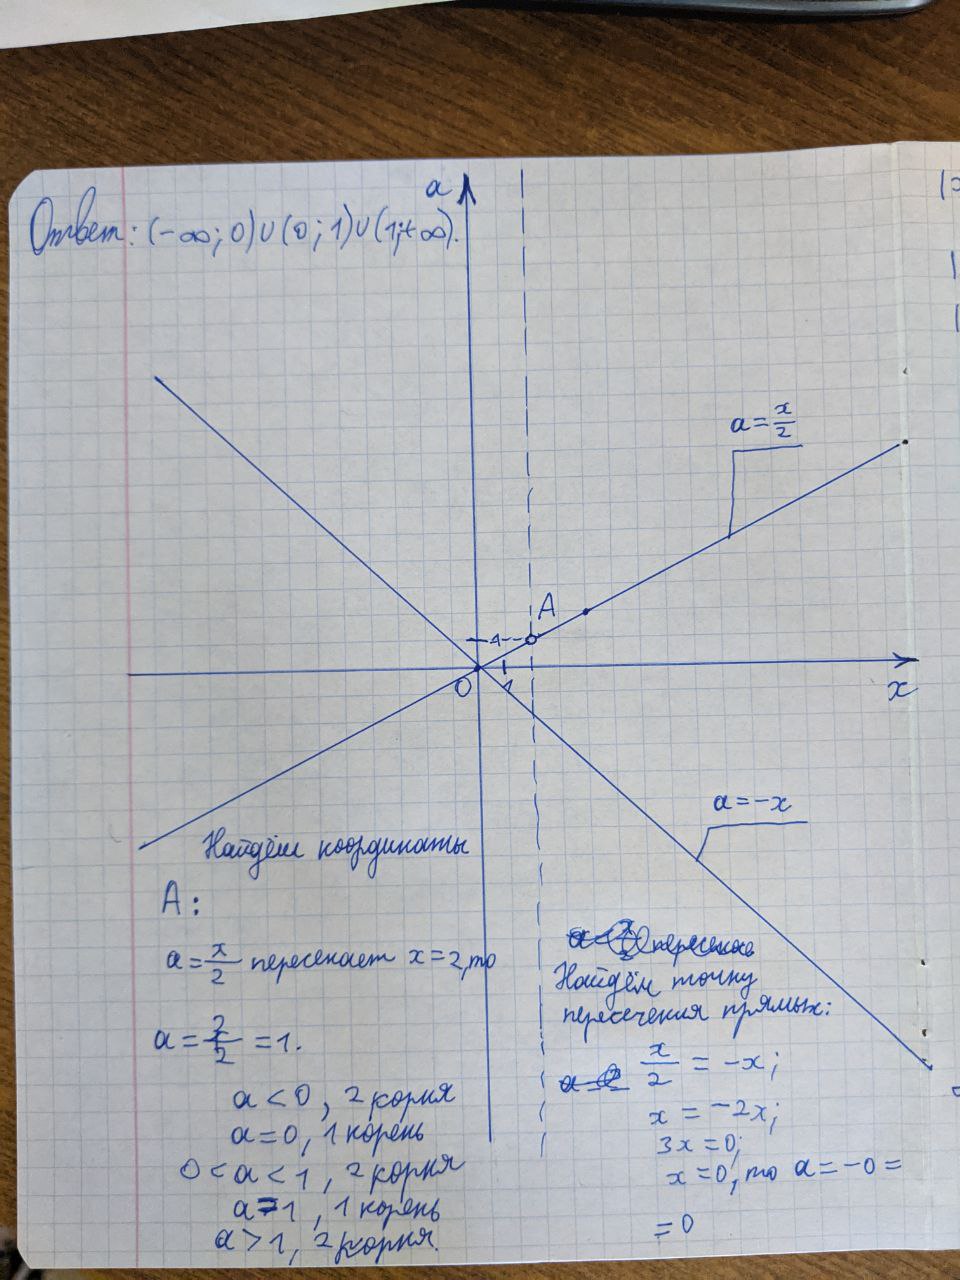 Ответ: (-∞; 0)∪(0; 1)∪(1;+∞).
a
a = x/2
A
1
0
1
x
a = -x
Найдём координаты
A:
a = x/2 пересекает x = 2, то
a = 2/2 = 1.
a < 0, 2 корня
a = 0, 1 корень
0 < a < 1, 2 корня
a = 1, 1 корень
a > 1, 2 корня.
Найдём точку
пересечения прямых:
x/2 = -x;
x = -2x;
3x = 0;
x = 0, то a = -0 =
= 0